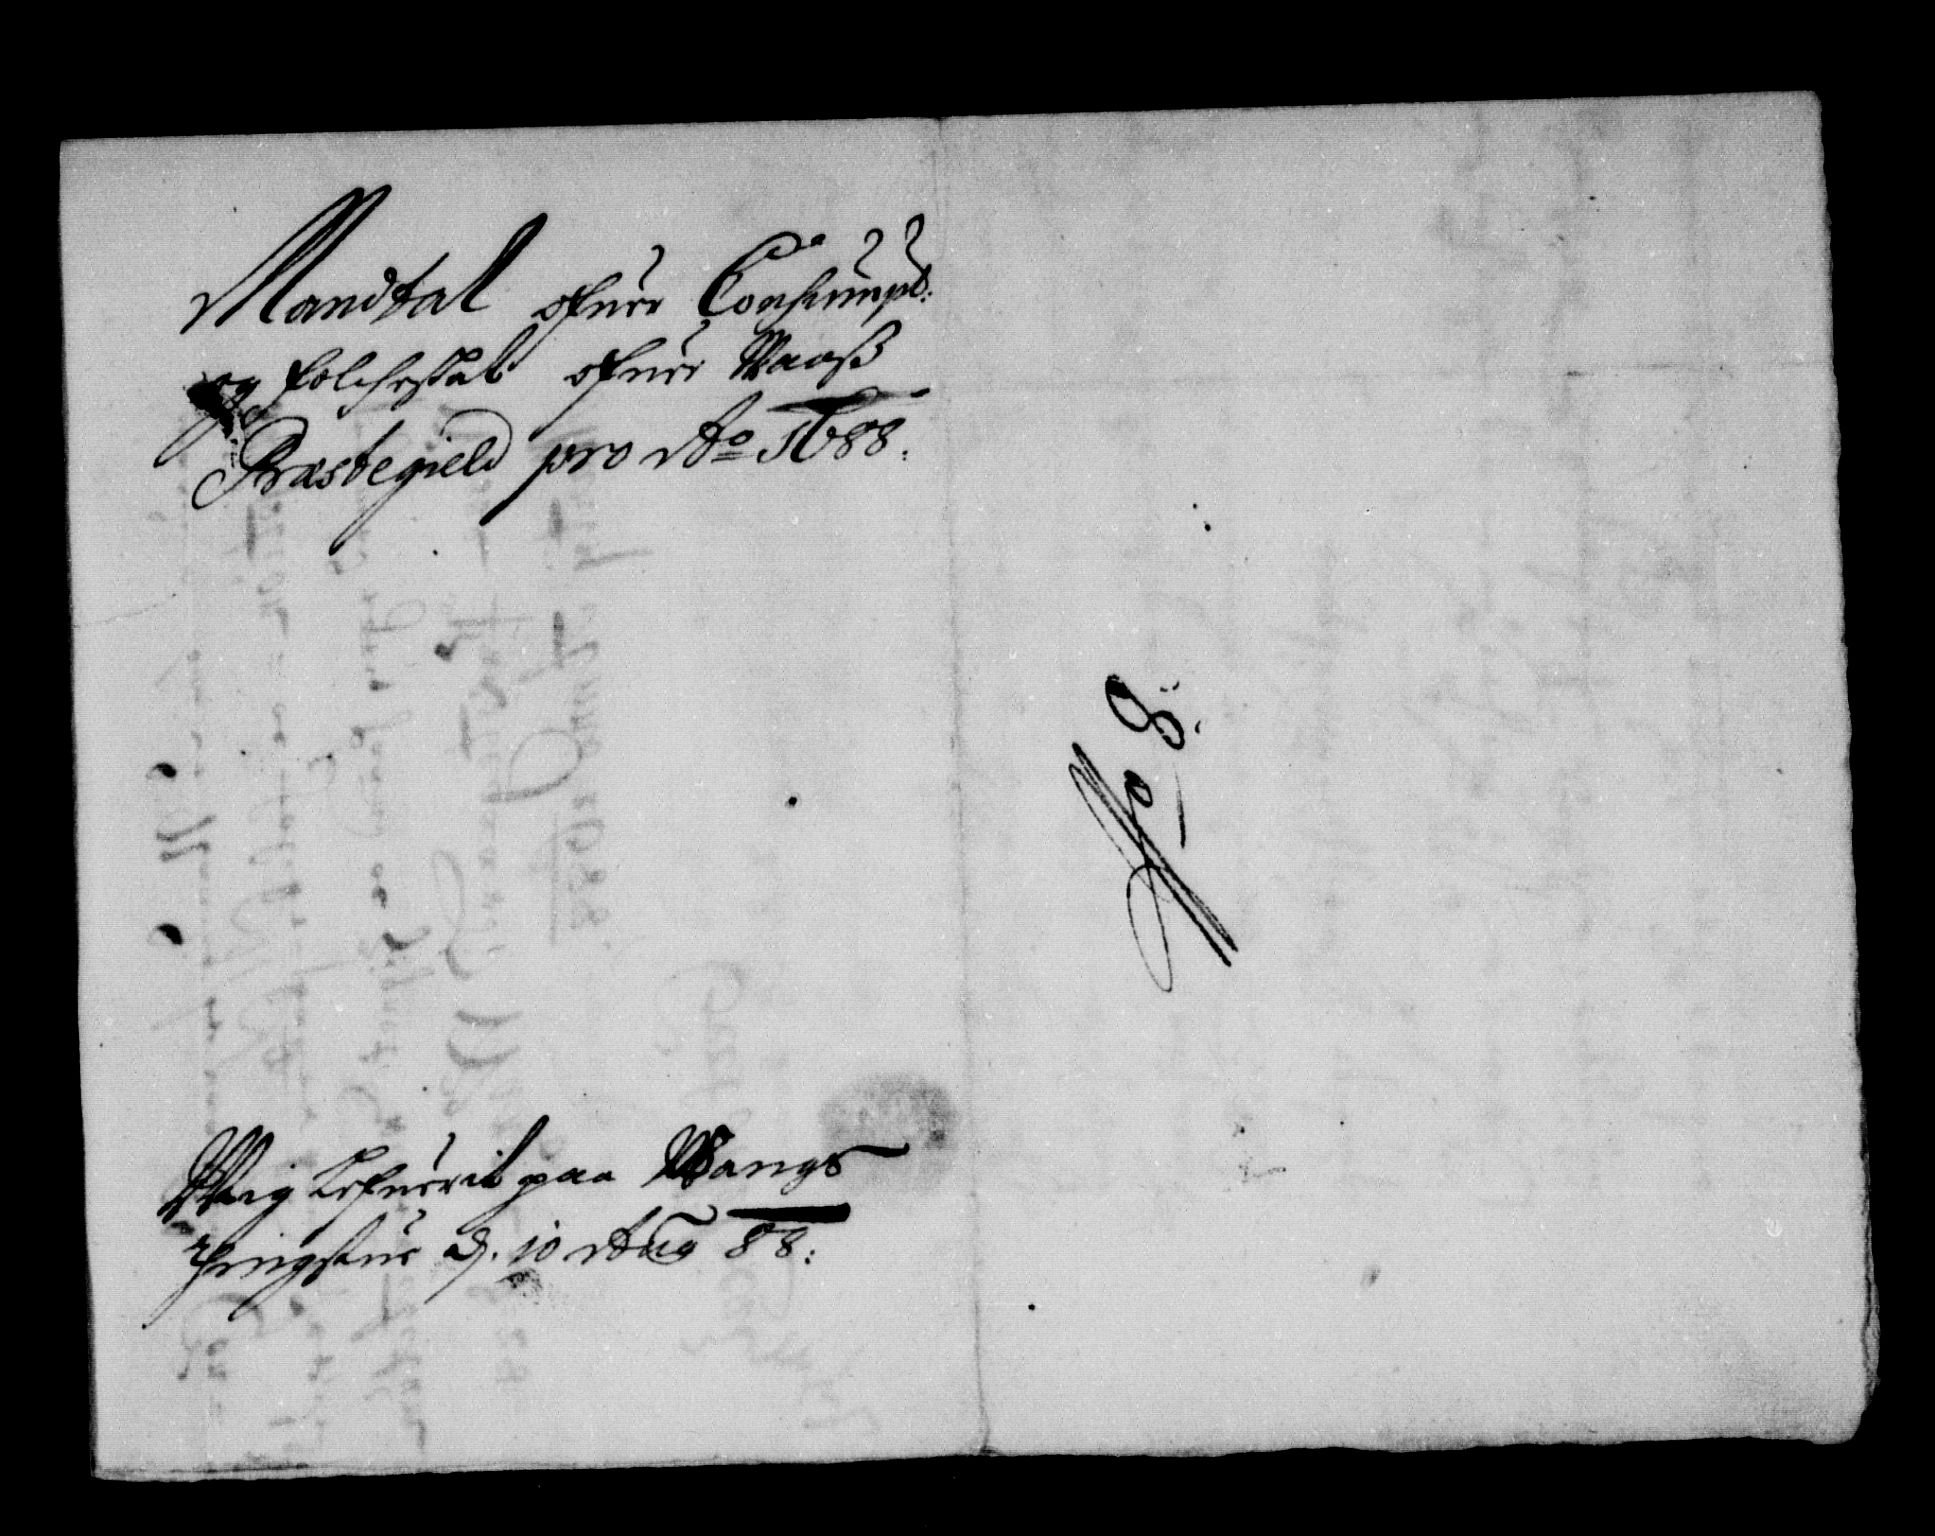 Mandtal ofuer Consumpt:
og folcheskat ofuer Waaß
Præstegield pro Ao 1688.
Mig lefuerit paa Wangs
thingstue d. 10 Aug 88:
No 8.